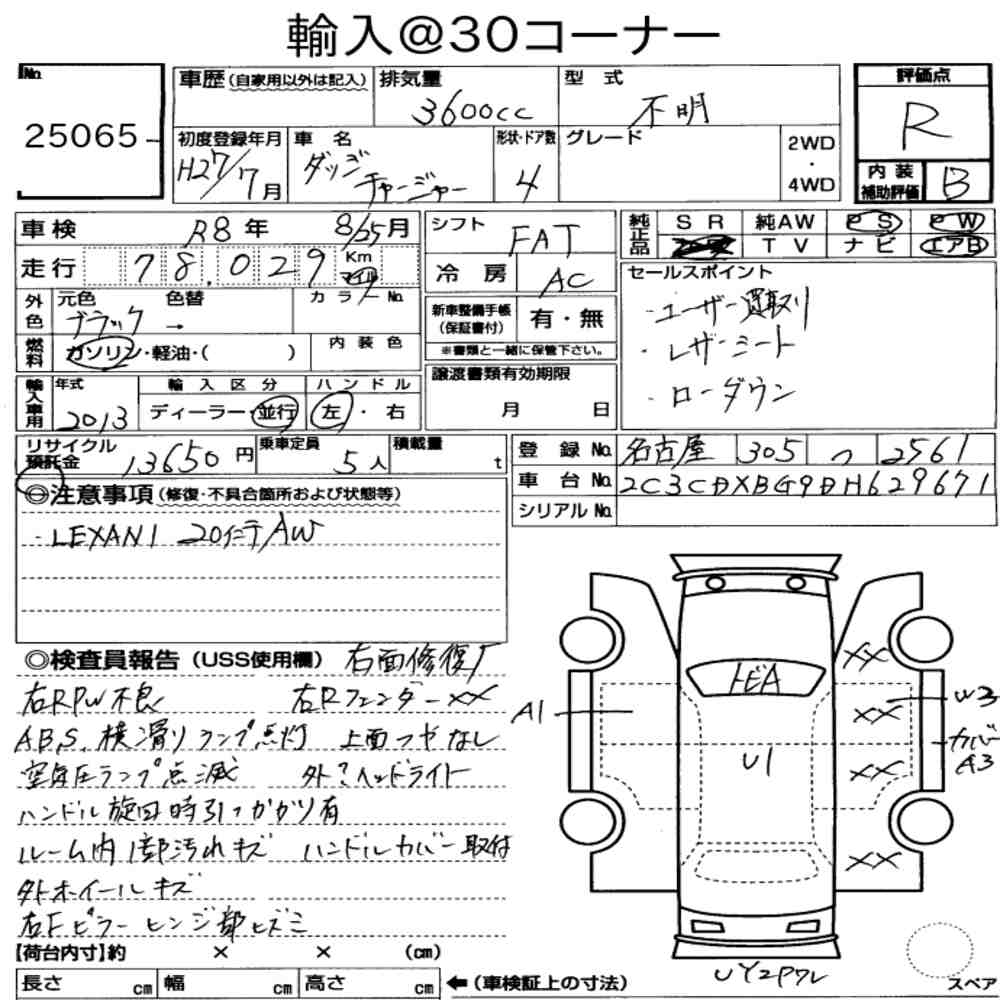 輸入@30コーナー
No.
25065
車歴(自家用以外は記入)
排気量
3600cc
型式
不明
評価点
R
初度登録年月
H27/7月
車名
ダッジ
チャージャー
形状・ドア数
4
グレード
2WD
・
4WD
内装
補助評価
B
車検 R8年 8/25月
走行 78,029 Km
シフト
FAT
冷房
AC
純正品
SR 純AW PS PW
TV ナビ エアB
外色
元色 色替
ブラック →
カラーNo.
燃料
ガソリン・軽油・( )
内装色
新車整備手帳
(保証書付)
有・無
※書類と一緒に保管下さい。
セールスポイント
・ユーザー買取り
・レザーシート
・ローダウン
輸入車用
年式
2013
輸入区分
ディーラー・並行
ハンドル
左・右
譲渡書類有効期限
月 日
リサイクル
預託金
13650円
乗車定員
5人
積載量
t
登録No. 名古屋 305 つ 2561
車台No. 2C3CDXBG9DH629671
シリアルNo.
◎注意事項(修復・不具合箇所および状態等)
・LEXANI 20インチAW
◎検査員報告(USS使用欄) 右面修復歴
右RPW不良 右RフェンダーXX
ABS、横滑りランプ点灯 上面つやなし
空気圧ランプ点滅 外?ヘッドライト
ハンドル旋回時引っかかり有
ルーム内1部汚れキズ ハンドルカバー取付
外ホイールキズ
右Fピラーヒンジ部ヒズミ
トビA
A1
U1
XX
XX
XX
XX
W3
カバー
A3
UY2P7レ
スペア
【荷台内寸】約 × × (cm)
長さ cm 幅 cm 高さ cm
←(車検証上の寸法)